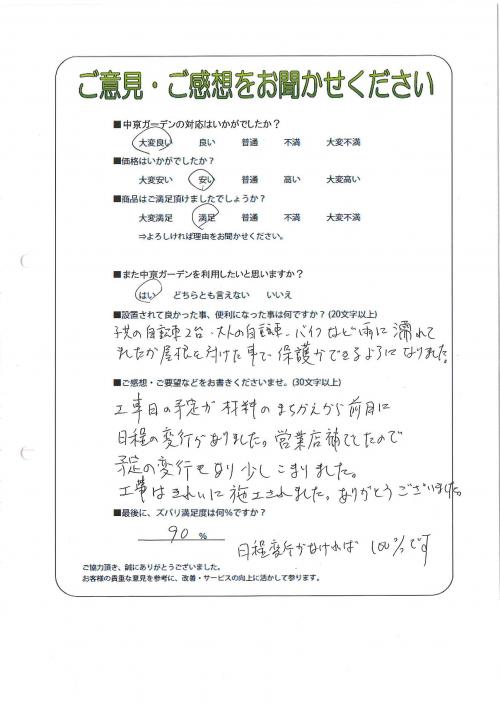 ご意見・ご感想をお聞かせください
■中京ガーデンの対応はいかがでしたか？
大変良い 良い 普通 不満 大変不満
■価格はいかがでしたか？
大変安い 安い 普通 高い 大変高い
■商品はご満足頂けましたでしょうか？
大変満足 満足 普通 不満 大変不満
⇒よろしければ理由をお聞かせください。
■また中京ガーデンを利用したいと思いますか？
はい どちらとも言えない いいえ
■設置されて良かった事、便利になった事は何ですか？(20文字以上)
子供の自転車2台・大人の自転車・バイクなど雨に濡れて
ましたが屋根を付けた事で、保護ができるようになりました。
■ご感想・ご要望などをお書きくださいませ。(30文字以上)
工事日の予定が材料のまちがえから前日に
日程の変行がありました。営業店
予定の変行もあり少しこまりました。
工事はきれいに施工されました。ありがとうございました。
■最後に、ズバリ満足度は何％ですか？
90 %
日程変行がなければ 100%です
ご協力頂き、誠にありがとうございました。
お客様の貴重な意見を参考に、改善・サービスの向上に活かして参ります。